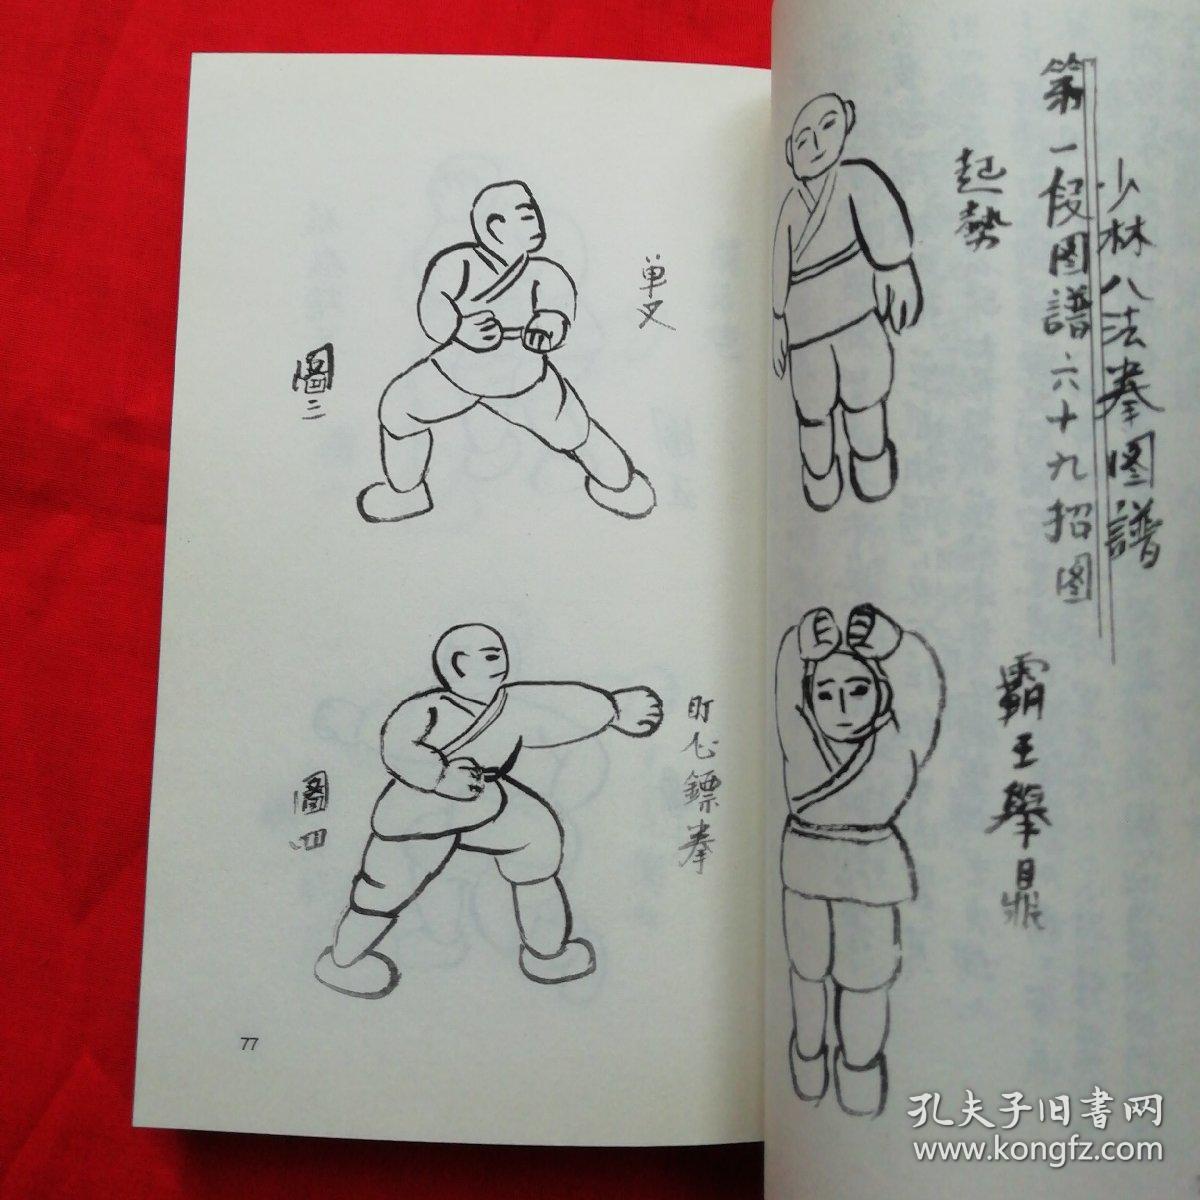 少林八法拳图譜
第一段图譜六十九招图
起勢
霸王舉鼎
单叉
圖三
盯心鏢拳
圖四
77
孔夫子旧書网
www.kongfz.com